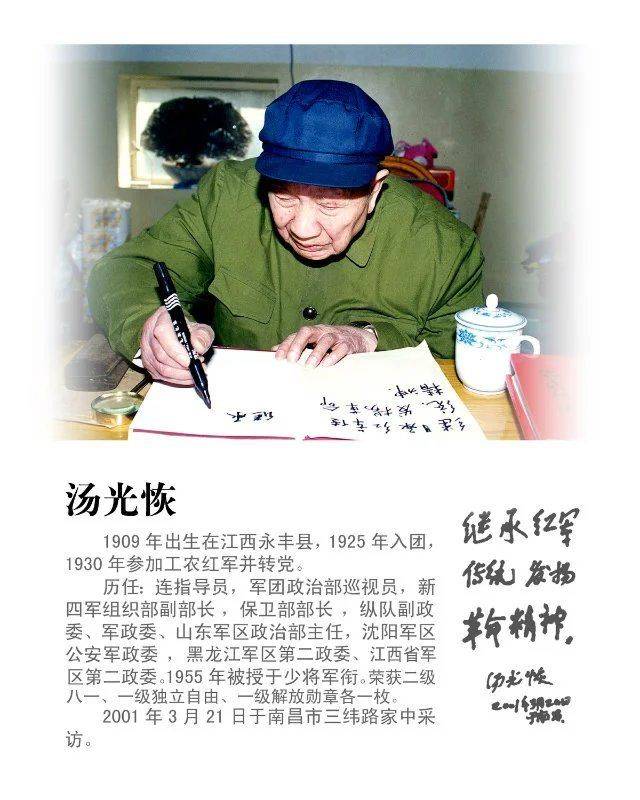 继承
继承红军传
统、发扬革命
精神.
汤光恢
1909 年出生在江西永丰县，1925 年入团，
1930 年参加工农红军并转党。
历任：连指导员，军团政治部巡视员，新
四军组织部副部长 ，保卫部部长 ，纵队副政
委、军政委、山东军区政治部主任，沈阳军区
公安军政委 ，黑龙江军区第二政委、江西省军
区第二政委。1955 年被授于少将军衔。荣获二级
八一、一级独立自由、一级解放勋章各一枚。
2001 年 3 月 21 日于南昌市三纬路家中采
访。
继承红军
传统 发扬
革命精神。
汤光恢
2001年3月20日